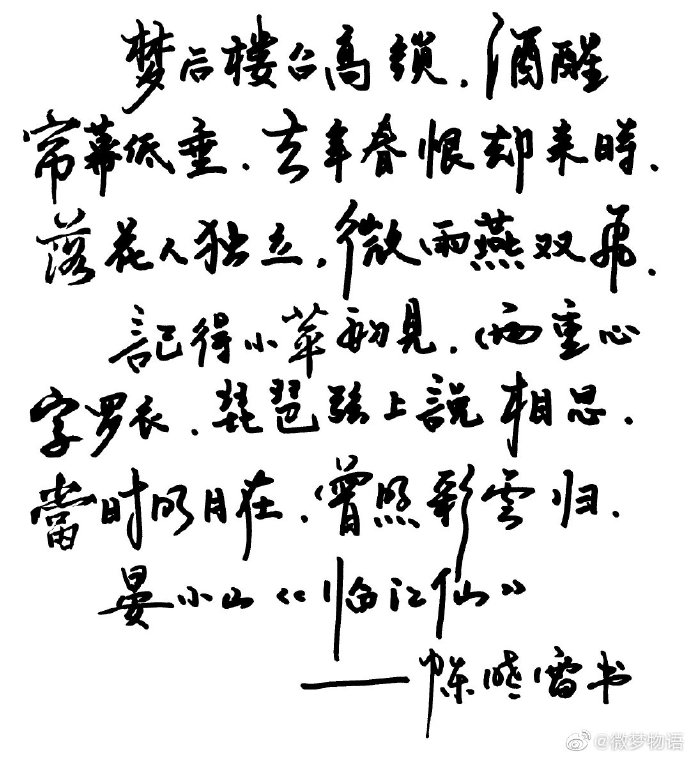 梦后楼台高鎖.酒醒
帘幕低垂.去年春恨却来時.
落花人独立.微雨燕双飛.
記得小苹初見.两重心
字罗衣.琵琶弦上說相思.
當时明月在.曾照彩雲归.
晏小山《临江仙》
——陈晓雷书
@微梦物语